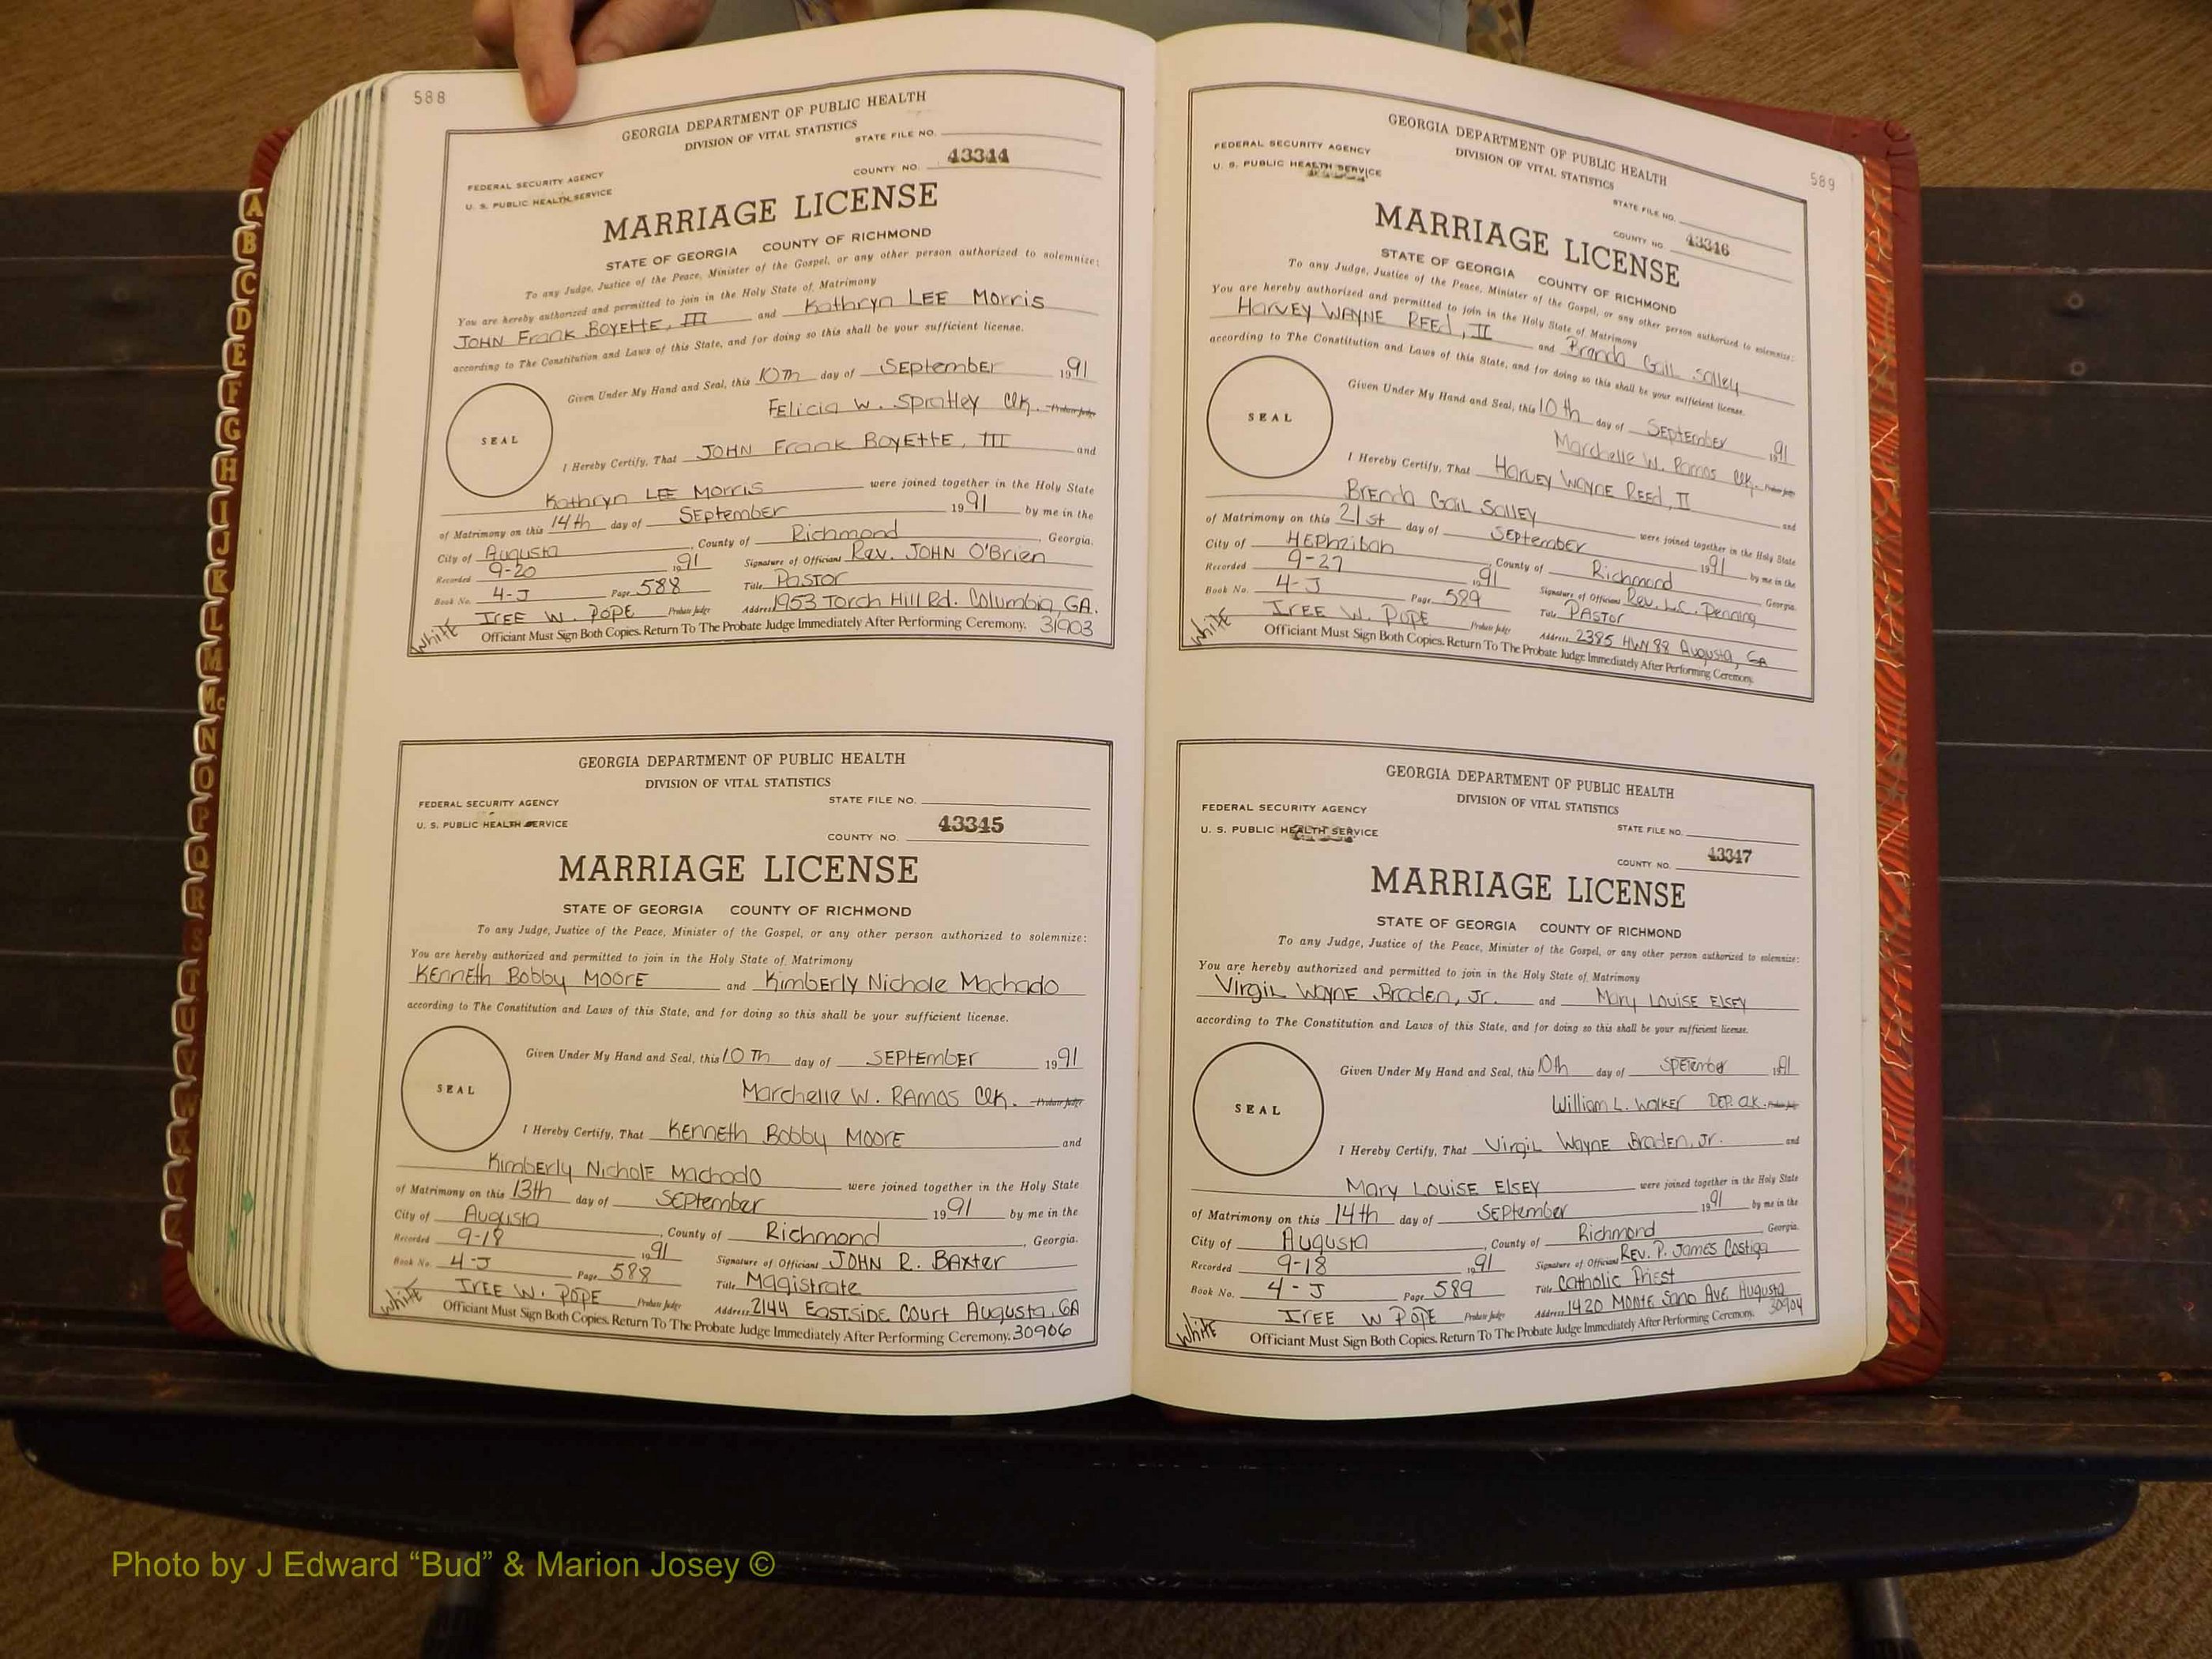 588
GEORGIA DEPARTMENT OF PUBLIC HEALTH
DIVISION OF VITAL STATISTICS
STATE FILE NO.
FEDERAL SECURITY AGENCY
U. S. PUBLIC HEALTH SERVICE
COUNTY NO. 43344
MARRIAGE LICENSE
STATE OF GEORGIA COUNTY OF RICHMOND
To any Judge, Justice of the Peace, Minister of the Gospel, or any other person authorized to solemnize:
You are hereby authorized and permitted to join in the Holy State of Matrimony
JOHN Frank BOYEttE, III and Kathryn LEE Morris
according to The Constitution and Laws of this State, and for doing so this shall be your sufficient license.
Given Under My Hand and Seal, this 10Th day of SEptembEr 1991
FElicia W. SpratlEy Clk. Probate Judge
SEAL
I Hereby Certify, That JOHN Frank BOyEttE, III and
Kathryn LEE Morris were joined together in the Holy State
of Matrimony on this 14th day of SEptembEr 1991 by me in the
City of Augusta, County of Richmond, Georgia.
Recorded 9-20 1991 Signature of Officiant Rev. JOHN O'BriEn
Book No. 4-J Page 588 Title Pastor
IrEE W. POPE Probate Judge Address 1953 Torch Hill Rd. Columbia, GA.
White Officiant Must Sign Both Copies. Return To The Probate Judge Immediately After Performing Ceremony. 31903
GEORGIA DEPARTMENT OF PUBLIC HEALTH
DIVISION OF VITAL STATISTICS
FEDERAL SECURITY AGENCY STATE FILE NO.
U. S. PUBLIC HEALTH SERVICE COUNTY NO. 43345
MARRIAGE LICENSE
STATE OF GEORGIA COUNTY OF RICHMOND
To any Judge, Justice of the Peace, Minister of the Gospel, or any other person authorized to solemnize:
You are hereby authorized and permitted to join in the Holy State of Matrimony
KEnnEth Bobby MOORE and KimbErly Nichole Machado
according to The Constitution and Laws of this State, and for doing so this shall be your sufficient license.
Given Under My Hand and Seal, this 10Th day of SEPtEmbER 1991
Marchelle W. RAmos Clk. Probate Judge
SEAL
I Hereby Certify, That KEnnEth Bobby MOORE and
KimbErly NicholE Machado were joined together in the Holy State
of Matrimony on this 13th day of SEptembEr 1991 by me in the
City of Augusta, County of Richmond, Georgia.
Recorded 9-18 1991 Signature of Officiant JOHN R. BAxter
Book No. 4-J Page 588 Title Magistrate
IrEE W. POPE Probate Judge Address 2144 EastsidE Court Augusta, GA
White Officiant Must Sign Both Copies. Return To The Probate Judge Immediately After Performing Ceremony. 30906
589
GEORGIA DEPARTMENT OF PUBLIC HEALTH
DIVISION OF VITAL STATISTICS
FEDERAL SECURITY AGENCY
U. S. PUBLIC HEALTH SERVICE
STATE FILE NO.
COUNTY NO. 43346
MARRIAGE LICENSE
STATE OF GEORGIA COUNTY OF RICHMOND
To any Judge, Justice of the Peace, Minister of the Gospel, or any other person authorized to solemnize:
You are hereby authorized and permitted to join in the Holy State of Matrimony
HarvEy WAYNE REEd, II and BrEnda Gail Salley
according to The Constitution and Laws of this State, and for doing so this shall be your sufficient license.
Given Under My Hand and Seal, this 10th day of SEptember 1991
Marchelle W. Ramos Clk. Probate Judge
SEAL
I Hereby Certify, That HarvEy WaynE REEd, II and
BrEnda Gail SallEy were joined together in the Holy State
of Matrimony on this 21st day of SEptember 1991 by me in the
City of HEphzibah, County of Richmond Georgia.
Recorded 9-27 1991 Signature of Officiant Rev. L.C. Denning
Book No. 4-J Page 589 Title PAStor
IrEE W. POPE Probate Judge Address 2385 HWY 88 Augusta, GA
White Officiant Must Sign Both Copies. Return To The Probate Judge Immediately After Performing Ceremony.
GEORGIA DEPARTMENT OF PUBLIC HEALTH
DIVISION OF VITAL STATISTICS
FEDERAL SECURITY AGENCY STATE FILE NO.
U. S. PUBLIC HEALTH SERVICE COUNTY NO. 43347
MARRIAGE LICENSE
STATE OF GEORGIA COUNTY OF RICHMOND
To any Judge, Justice of the Peace, Minister of the Gospel, or any other person authorized to solemnize:
You are hereby authorized and permitted to join in the Holy State of Matrimony
Virgil WaynE Braden, Jr. and Mary LouisE ElsEy
according to The Constitution and Laws of this State, and for doing so this shall be your sufficient license.
Given Under My Hand and Seal, this 10th day of SpEtember 1991
William L. WalkEr DEP. Clk. Probate Judge
SEAL
I Hereby Certify, That Virgil WaynE BradEn, Jr. and
Mary LouisE ElsEy were joined together in the Holy State
of Matrimony on this 14th day of SEptember 1991 by me in the
City of Augusta, County of Richmond Georgia.
Recorded 9-18 1991 Signature of Officiant Rev. P. JamEs Costiga
Book No. 4-J Page 589 Title Catholic Priest
IrEE W POPE Probate Judge Address 1420 MontE Sano AvE Augusta
White Officiant Must Sign Both Copies. Return To The Probate Judge Immediately After Performing Ceremony. 30904
A
B
C
D
E
F
G
H
I
J
K
L
M
Mc
N
O
P
Q
R
S
T
U
V
W
X
Y
Z
Photo by J Edward “Bud” & Marion Josey ©